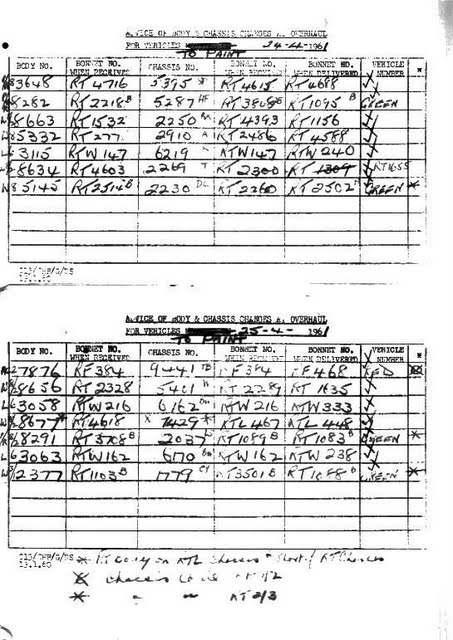 ADVICE OF BODY & CHASSIS CHANGES AT OVERHAUL
FOR VEHICLES 24-4-1961
TO PAINT
BODY NO. BONNET NO. WHEN RECEIVED CHASSIS NO. BONNET NO. WHEN RECEIVED BONNET NO. WHEN DELIVERED VEHICLE NUMBER *
3648 RT4716 5395 RT4615 RT4688
8282 RT2218B 5287 RT1095B GREEN
8663 RT1532 2250 RT4393 RT1156
5332 RT277 2910 RT2486 RT4588
3115 RTW147 6219 RTW147 RTW240
8634 RT4603 2269 T RT2300 RT1309 RT1655
5145 RT2514B 2230 RT2260 RT2502 GREEN *
ADVICE OF BODY & CHASSIS CHANGES AT OVERHAUL
FOR VEHICLES 25-4-1961
TO PAINT
BODY NO. BONNET NO. WHEN RECEIVED CHASSIS NO. BONNET NO. WHEN RECEIVED BONNET NO. WHEN DELIVERED VEHICLE NUMBER *
7876 RF384 9441 RF384 RF468 RED
8656 RT2328 5401 RT2289 RT1635
3058 RTW216 6162 RTW216 RTW333
8677 * RT4618 x 7429 * RTL467 RTL448
8291 RT3708B 2037 RT1089B RT1083B GREEN *
63063 RTW162 6170 RTW162 RTW238
2377 RT1103B 1779 RT3501B RT1088B GREEN *
* RT Body on RTL Chassis * Short of RT Chassis
chassis
* " " RT2/3